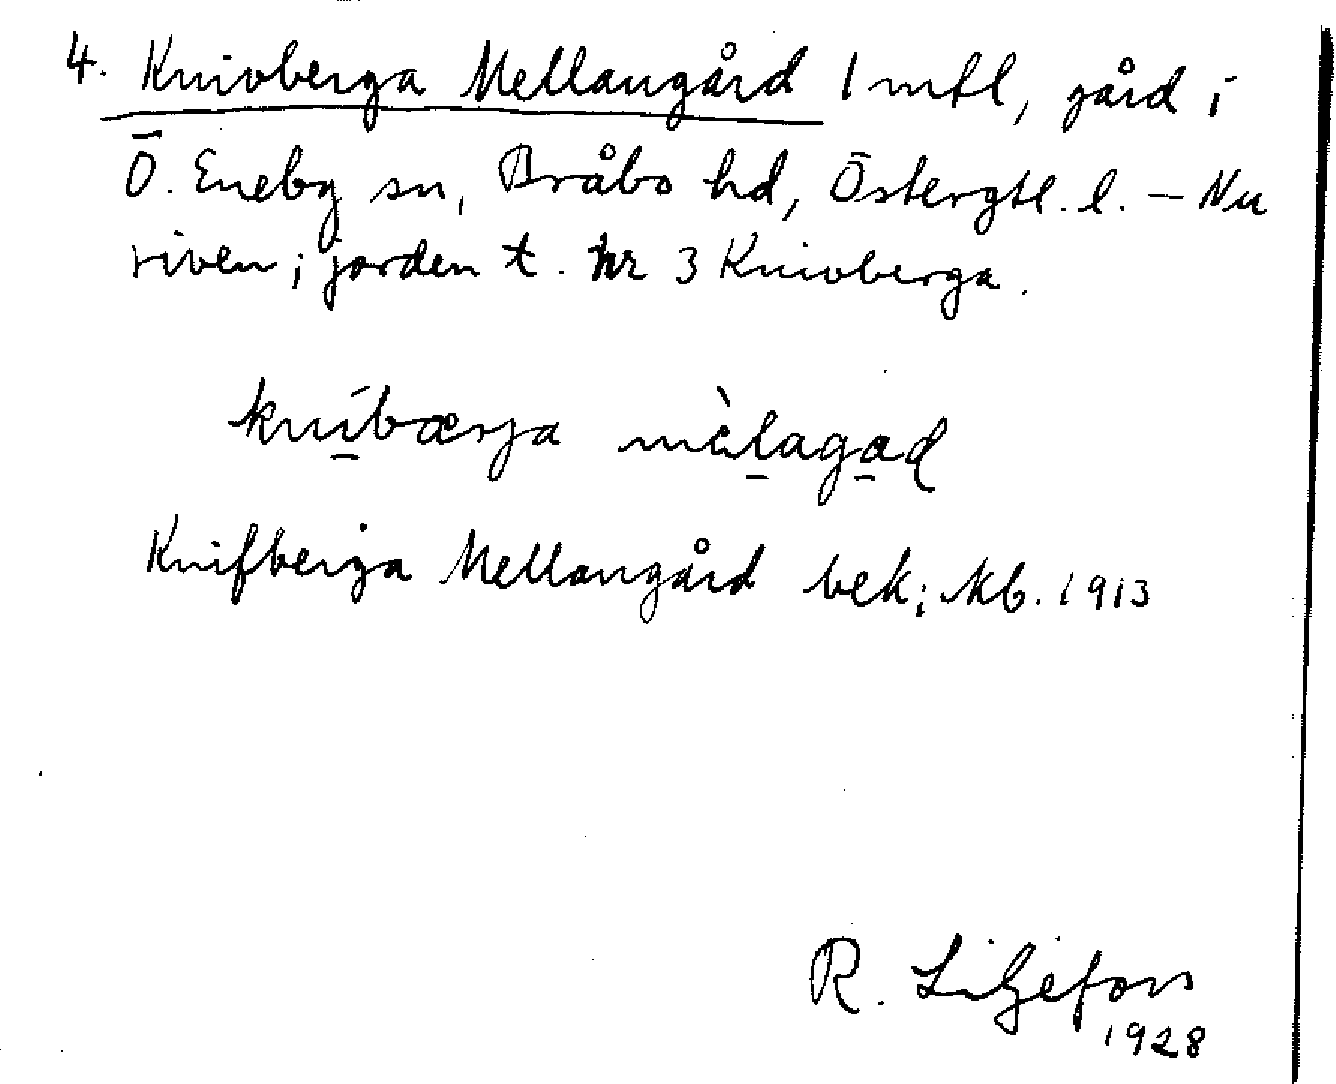 4. Knivberga Mellangård 1 mtl, gård i
Ö. Eneby sn, Bråbo hd, Östergtl. l. — Nu
riven; jorden t. nr 3 Knivberga.
kníbærja mèlagad
Knifberga Mellangård bek; kb. 1913
R. Liljefors
1928